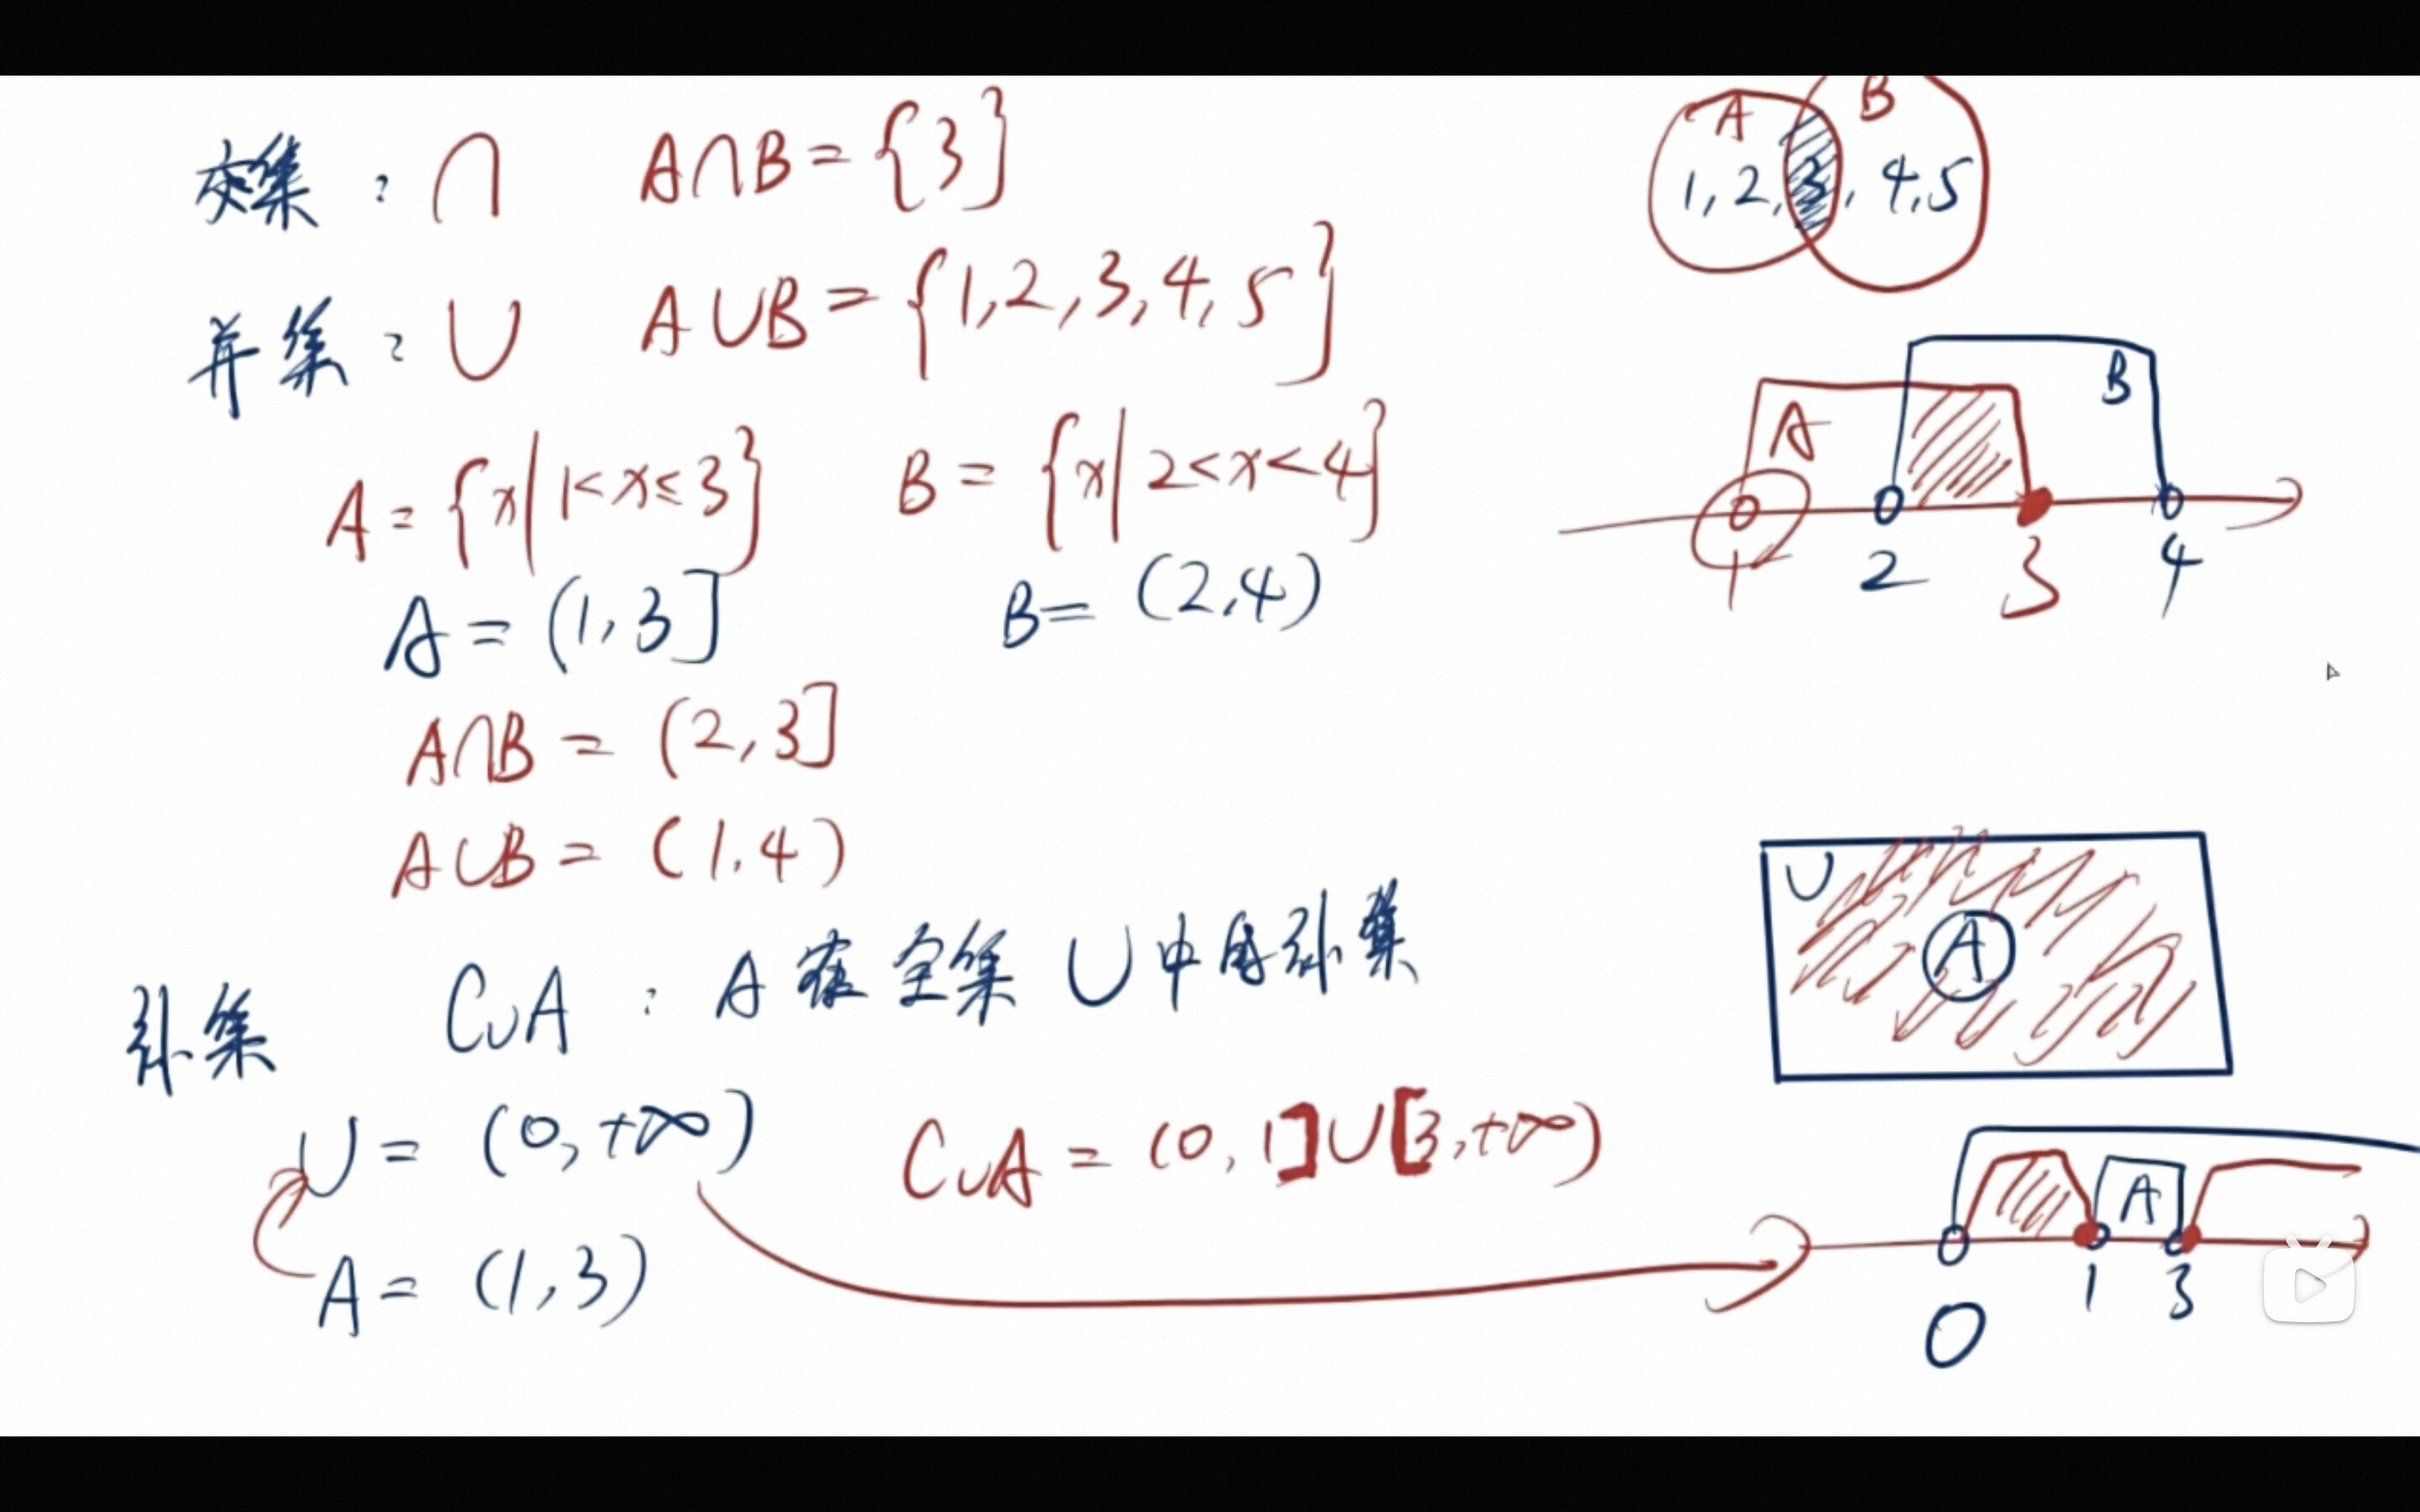 交集：∩ A∩B = {3}
A B
1, 2, 3, 4, 5
并集：∪ A∪B = {1, 2, 3, 4, 5}
A = {x|1<x≤3} B = {x|2<x<4}
A B
1 2 3 4
A = (1, 3] B = (2, 4)
A∩B = (2, 3]
A∪B = (1, 4)
U
A
补集 C∪A : A 在全集 U 中的补集
U = (0, +∞) C∪A = (0, 1]∪[3, +∞)
A
0 1 3
A = (1, 3)